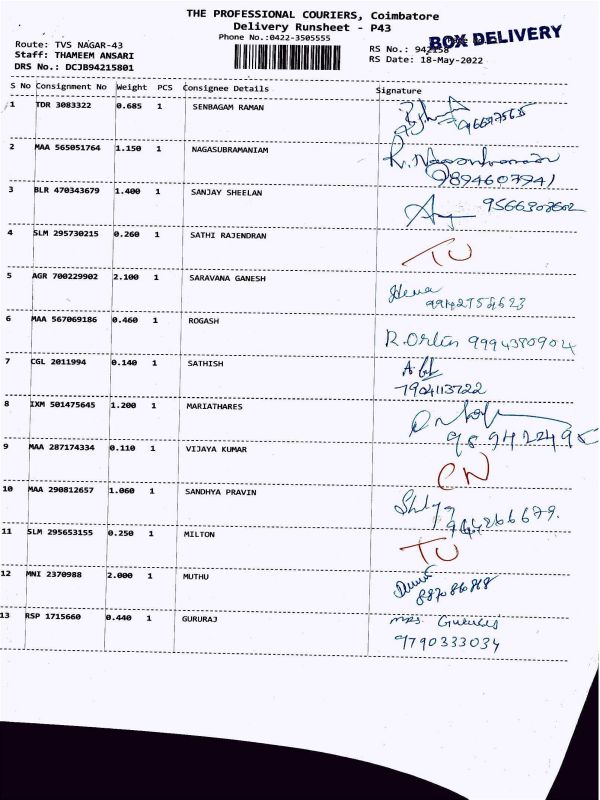 THE PROFESSIONAL COURIERS, Coimbatore
Delivery Runsheet - P43
Phone No.:0422-3505555
BOX DELIVERY
Route: TVS NAGAR-43
Staff: THAMEEM ANSARI
DRS No.: DCJB94215801
RS No.: 942158
RS Date: 18-May-2022
S No Consignment No Weight PCS Consignee Details Signature
1 TDR 3083322 0.685 1 SENBAGAM RAMAN
2 MAA 565051764 1.150 1 NAGASUBRAMANIAM
9894607941
3 BLR 470343679 1.400 1 SANJAY SHEELAN
9566308602
4 SLM 295730215 0.260 1 SATHI RAJENDRAN TU
5 AGR 700229902 2.100 1 SARAVANA GANESH Hema
6 MAA 567069186 0.460 1 ROGASH
R. 9994380904
7 CGL 2011994 0.140 1 SATHISH
7904113722
8 IXM 501475645 1.200 1 MARIATHARES
9 MAA 287174334 0.110 1 VIJAYA KUMAR CN
10 MAA 290812657 1.060 1 SANDHYA PRAVIN
11 SLM 295653155 0.250 1 MILTON TU
12 MNI 2370988 2.000 1 MUTHU
13 RSP 1715660 0.440 1 GURURAJ mrs.
9790333034